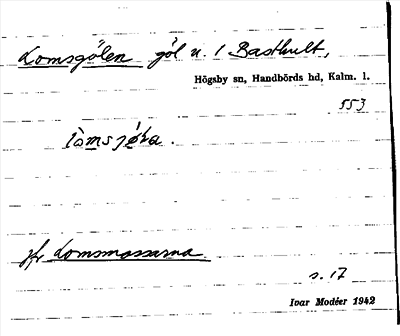 Lomsgölen göl u. / Basthult,
Högsby sn, Handbörds hd, Kalm. l.
553
Jfr Lomsmossarna
s. 17
Ivar Modéer 1942